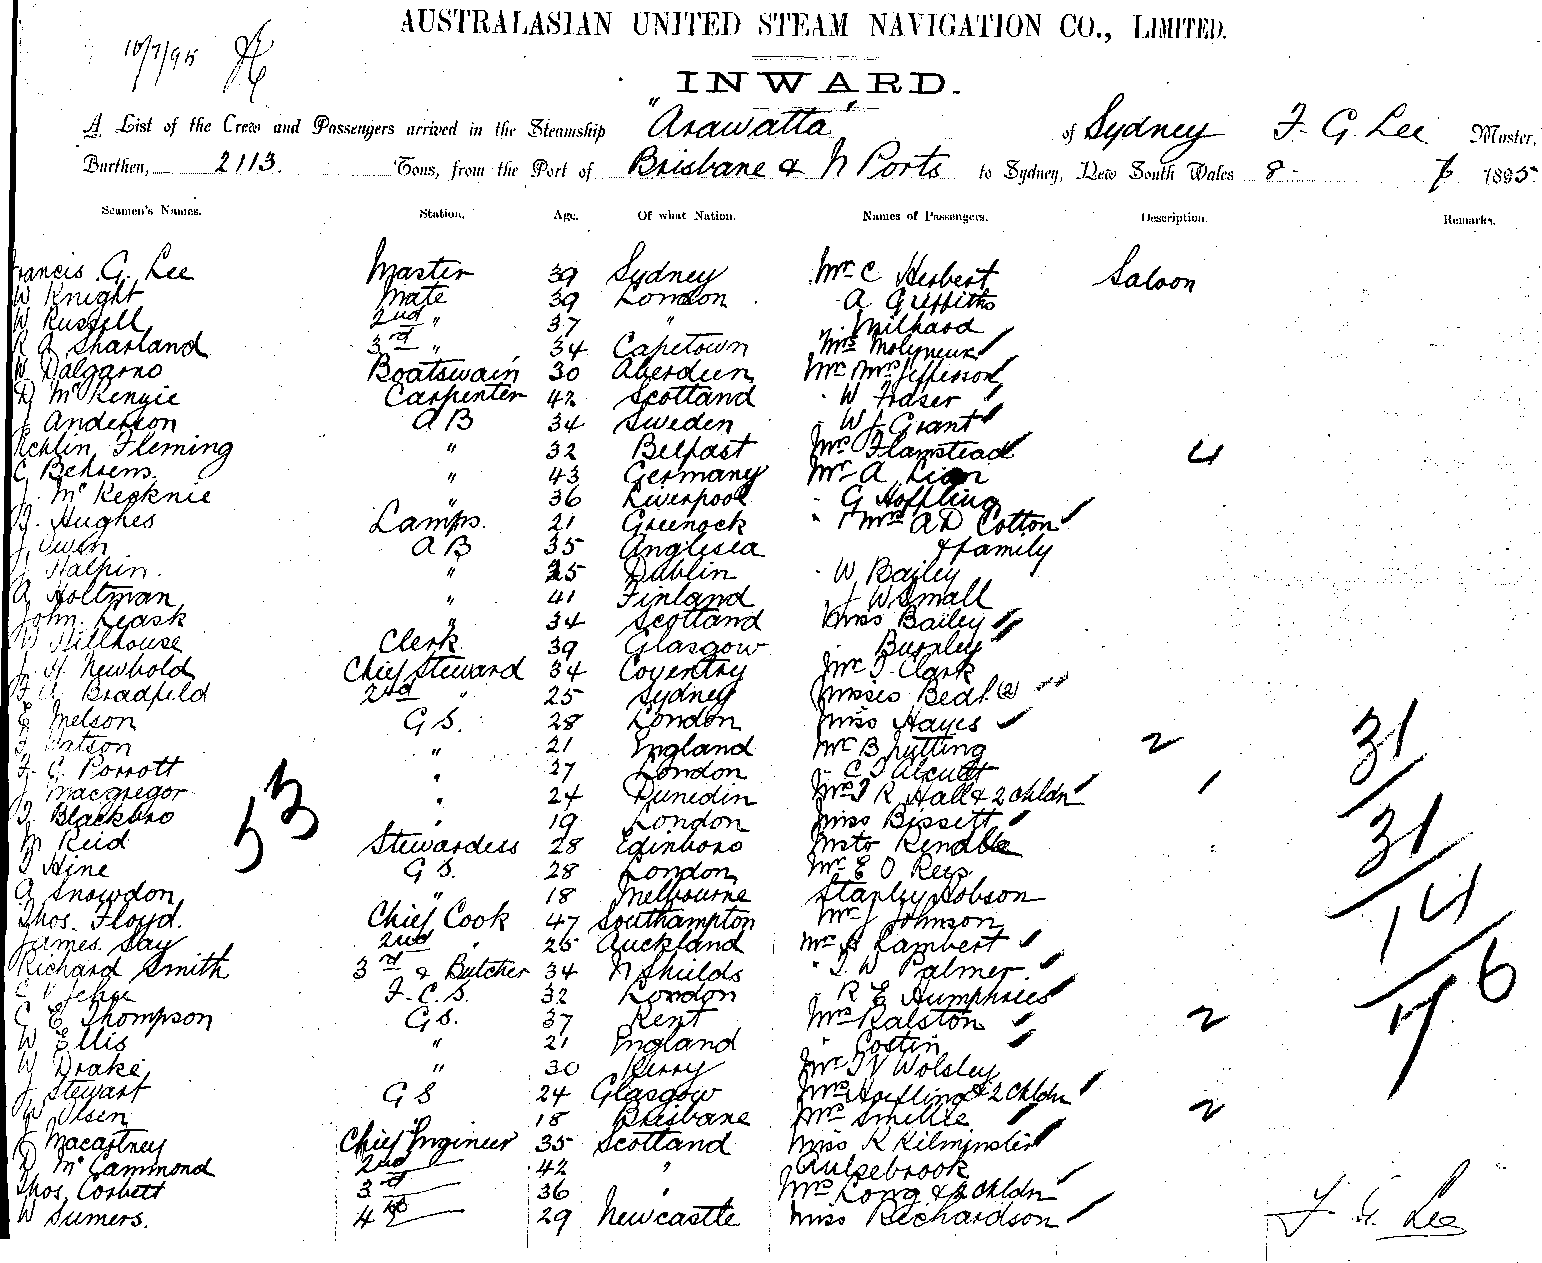 10/7/95
AUSTRALASIAN UNITED STEAM NAVIGATION CO., LIMITED.
INWARD.
A List of the Crew and Passengers arrived in the Steamship "Arawatta" of Sydney F. G. Lee Master,
Burthen, 2113. Tons, from the Port of Brisbane & N Ports to Sydney, New South Wales 8 7 1895
Seamen's Names. Station. Age. Of what Nation. Names of Passengers. Description. Remarks.
Francis G. Lee Master 39 Sydney Mr C Herbert Saloon
W Knight Mate 39 London A Griffiths
W Russell 2nd " 37 " Milhard
R A Sharland 3rd " 34 Capetown Mrs Molyneux
W Dalgarno Boatswain 30 Aberdeen Mr Mrs Jefferson
D McKenzie Carpenter 42 Scotland " W Fraser
J Anderson A B 34 Sweden " W J Grant
Fleming " 32 Belfast Mrs Flamstead 4
C Behrens " 43 Germany Mr A Lion
J. McKecknie " 36 Liverpool " G Hoffling
Hughes Lamps. 21 Greenock " & Mrs A D Cotton
J Owen A B 35 Anglisea & family
J Halpin. " 25 Dublin " W Bailey
A Holtman " 41 Finland J W Small
John Leask " 34 Scotland Miss Bailey
W Hillhouse Clerk 39 Glasgow " Burnley
J. H Newbold Chief Steward 34 Coventry Mr T Clark
F. A. Bradfield 2nd " 25 Sydney Misses Bedf (2)
E Melson G S. 28 London Miss Hayes
Watson " 21 England Mr B Nutting 2
F. C Porrott " 27 London " C T
J Macgregor " 24 Dunedin Mrs T R Hall & 2 Chldn 1
T. Blackbro " 19 London Miss Bissett
M Reid Stewardess 28 Edinboro Mstr Rendle
T Hine G S. 28 London Mr E O Rees
A Snowdon " 18 Melbourne Stanley Hobson
Thos. Floyd. Chief Cook 47 Southampton Mr J Johnson
James Say 2nd " 25 Auckland Mr A Lambert
Richard Smith 3rd & Butcher 34 N Shields " T W Palmer
F. C. S. 32 London " R E Humphries
C E Thompson G S. 37 Kent Mrs Ralston 2
W Ellis " 21 England " Costin
W Drake " 30 Kerry Mr T V Wolsley
J Stewart G S 24 Glasgow Mrs Hoefling & 2 Chldn
W Olsen 18 Brisbane Mrs Smellie 2
J Macartney Chief Engineer 35 Scotland Miss K Kilminster
D McCammond 2nd 42 " Aulsebrook
Thos. Corbett 3rd 36 " Mrs Long & 2 chldn
W Sumers. 4th 29 Newcastle Miss Richardson
53
31
31
14
76
F. G. Lee